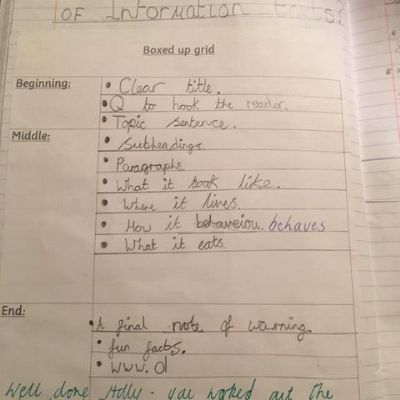 OF Information texts?
Boxed up grid
Beginning:
• Clear title.
• Q to hook the reader.
• Topic sentence.
Middle:
• Subheadings.
• Paragraphs.
• What it look like.
• Where it lives.
• How it behaves
• What it eats
End:
• A final note of warning
• fun facts.
• WWW. O!
Well done - you worked out the